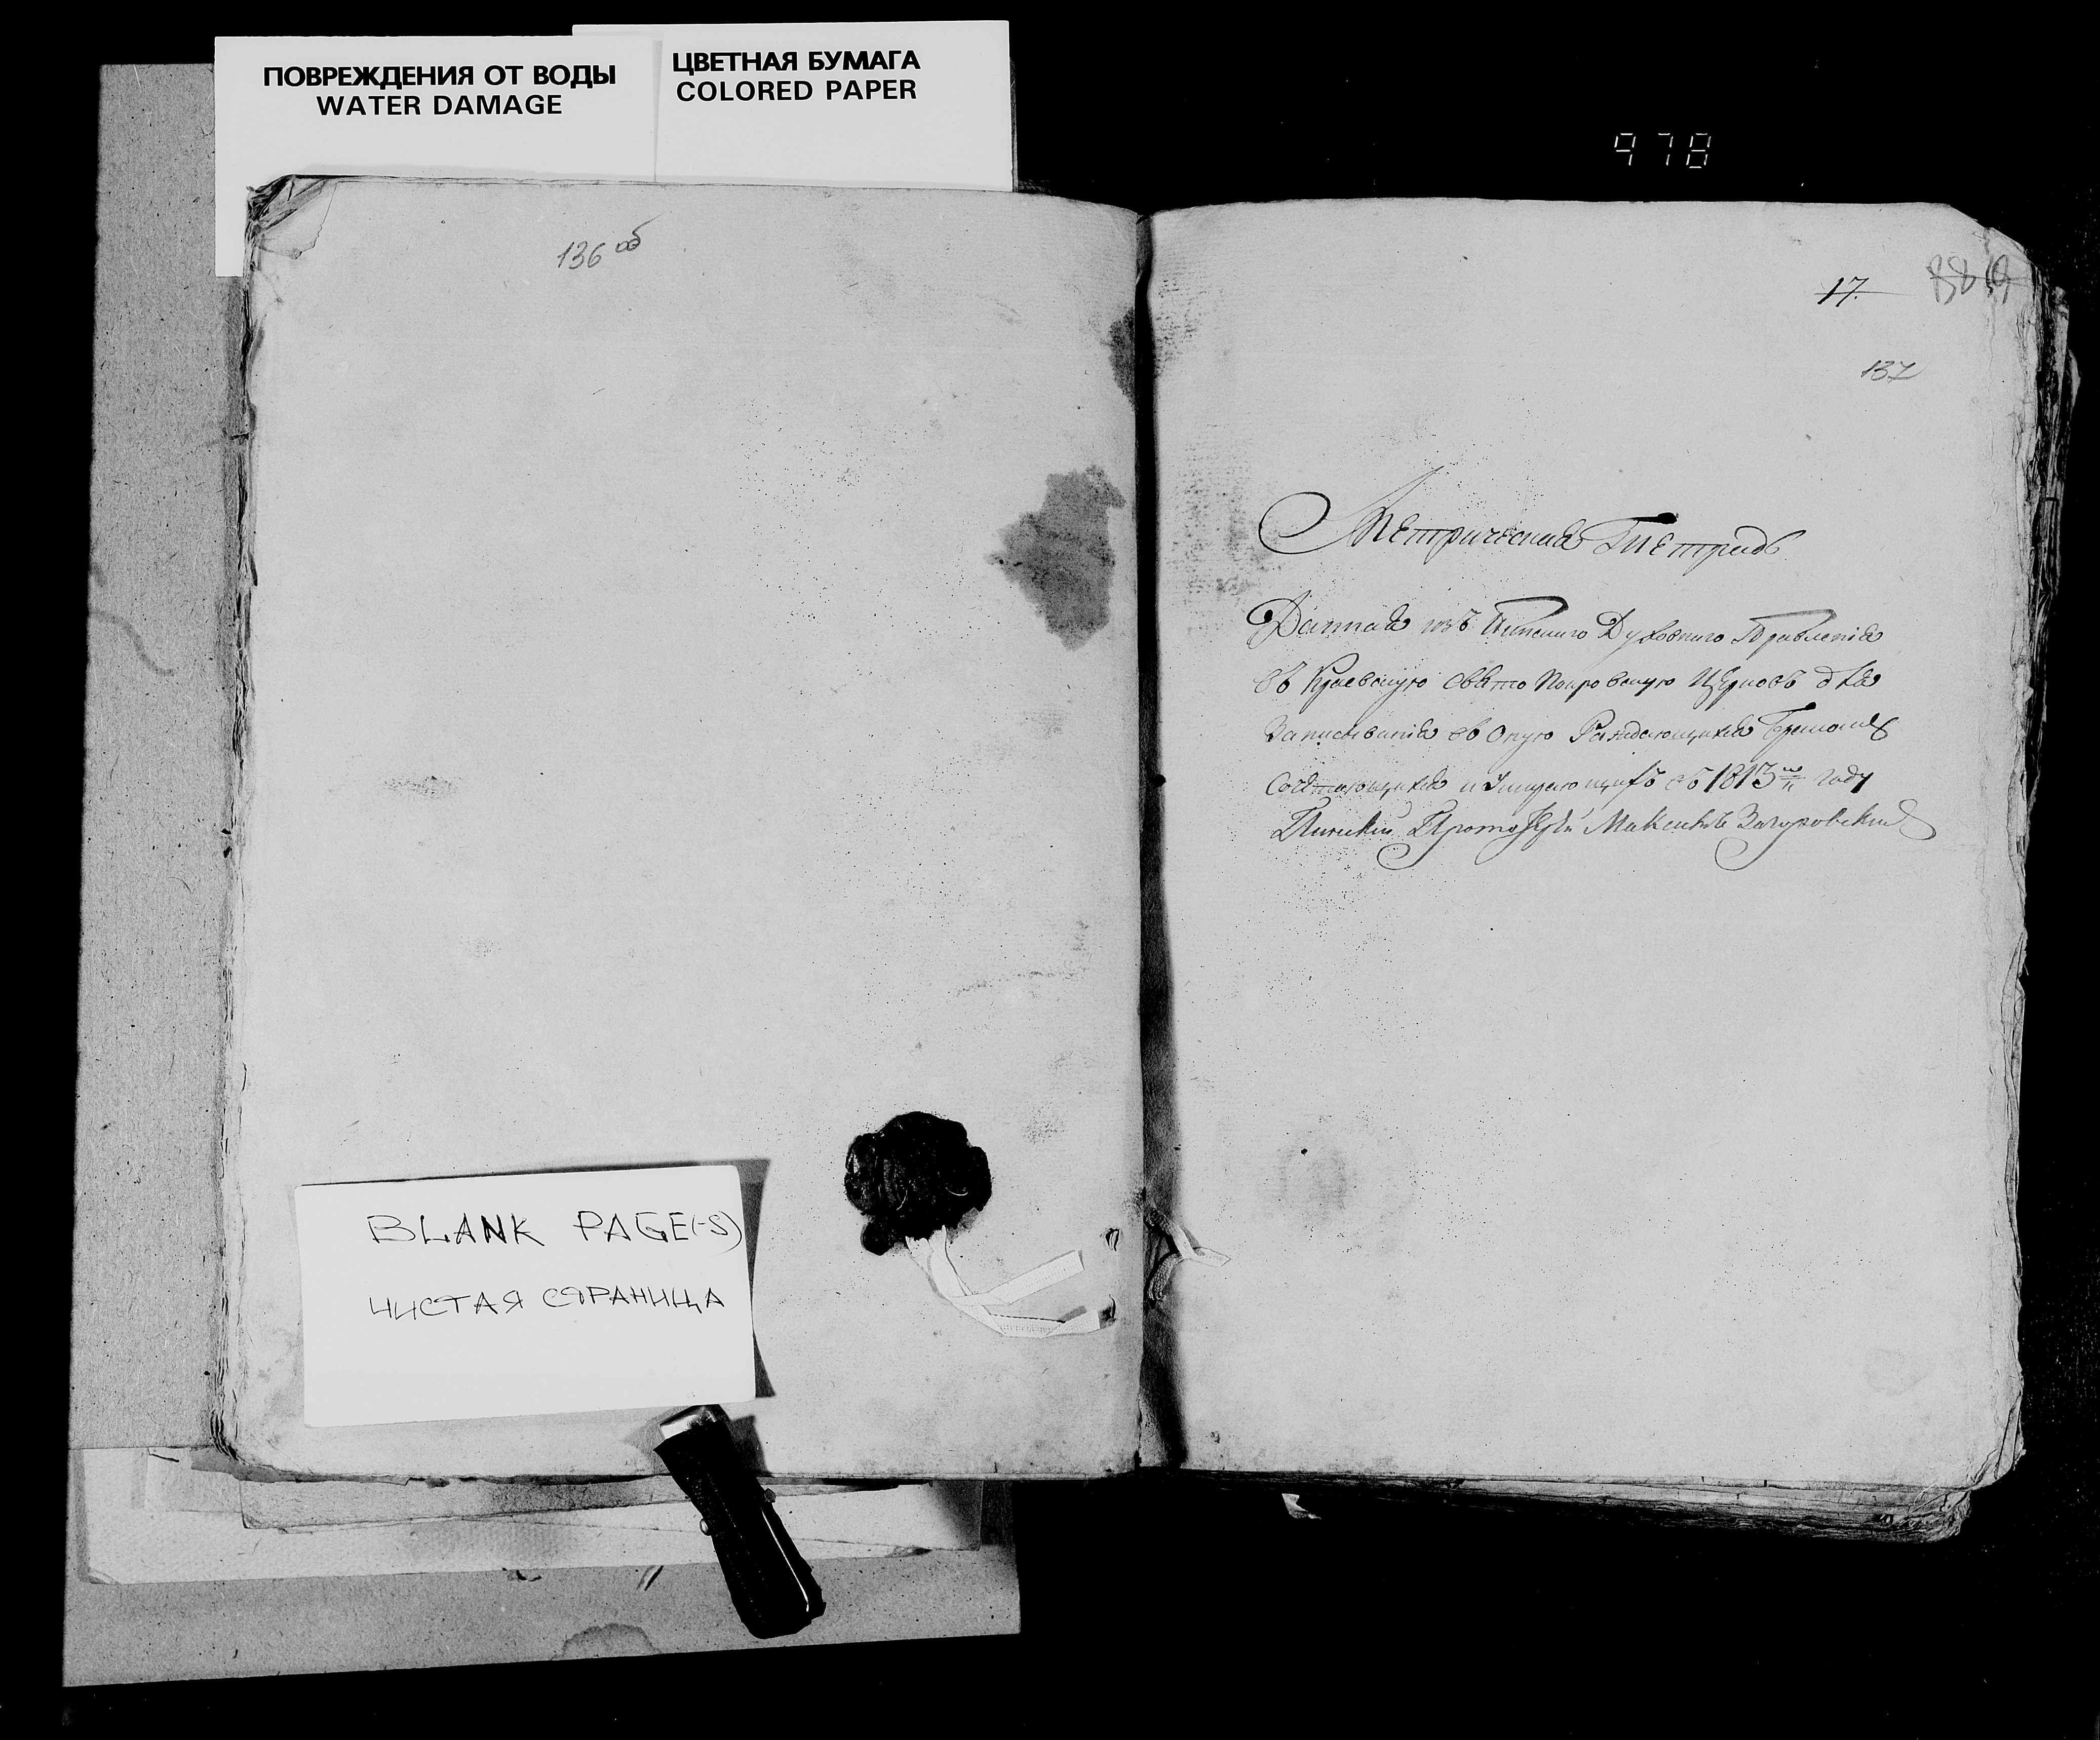 ПОВРЕЖДЕНИЯ ОТ ВОДЫ
WATER DAMAGE
ЦВЕТНАЯ БУМАГА
COLORED PAPER
978
136 об
BLANK PAGE(-S)
ЧИСТАЯ СТРАНИЦА
17.
137
Метрическая Тетрадь
Данная изъ Пинскаго Духовнаго Правленія
въ Краевскую Свято Покровскую Церковь для
Записыванія въ Оную Раждающихся Бракомъ
Сочетающихся и Умирающихъ въ 1813 году
Пинскій Протоіерей Максимъ Загоровский